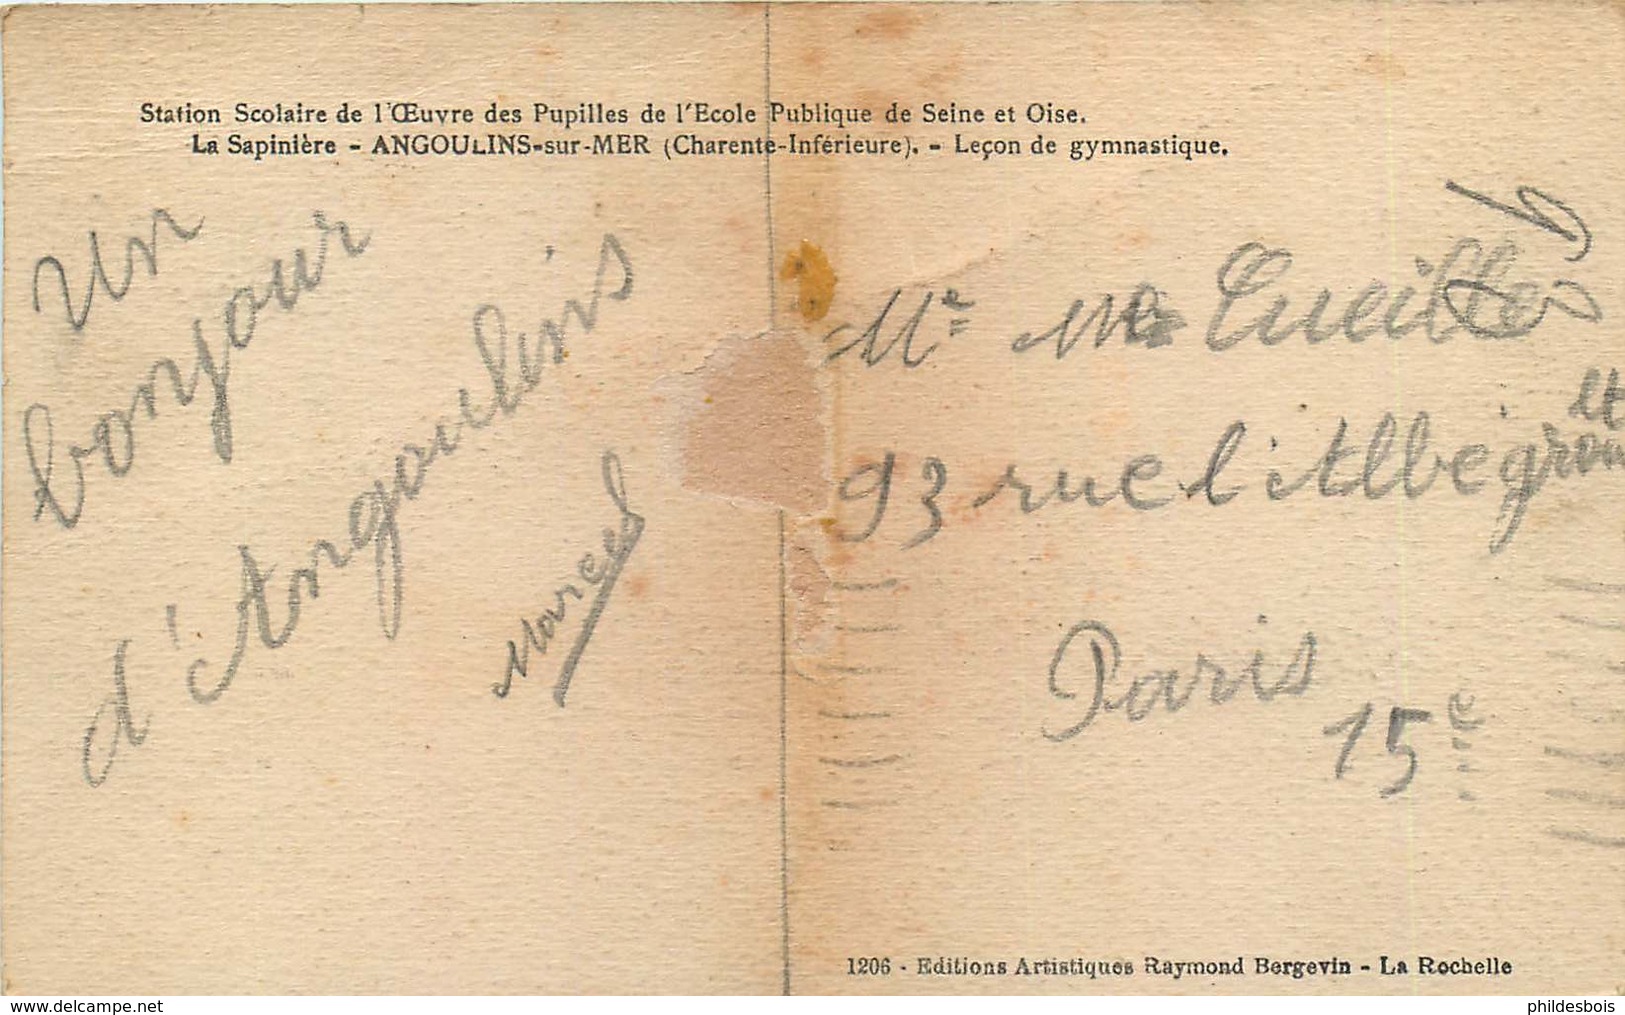 Station Scolaire de l'Œuvre des Pupilles de l'Ecole Publique de Seine et Oise.
La Sapinière - ANGOULINS-sur-MER (Charente-Inférieure). - Leçon de gymnastique.
Un
bonjour
d'Angoulins
Marcel
Me Cueille
93 rue l
Paris
15eme
1206 - Editions Artistiques Raymond Bergevin - La Rochelle
www.delcampe.net
phildesbois